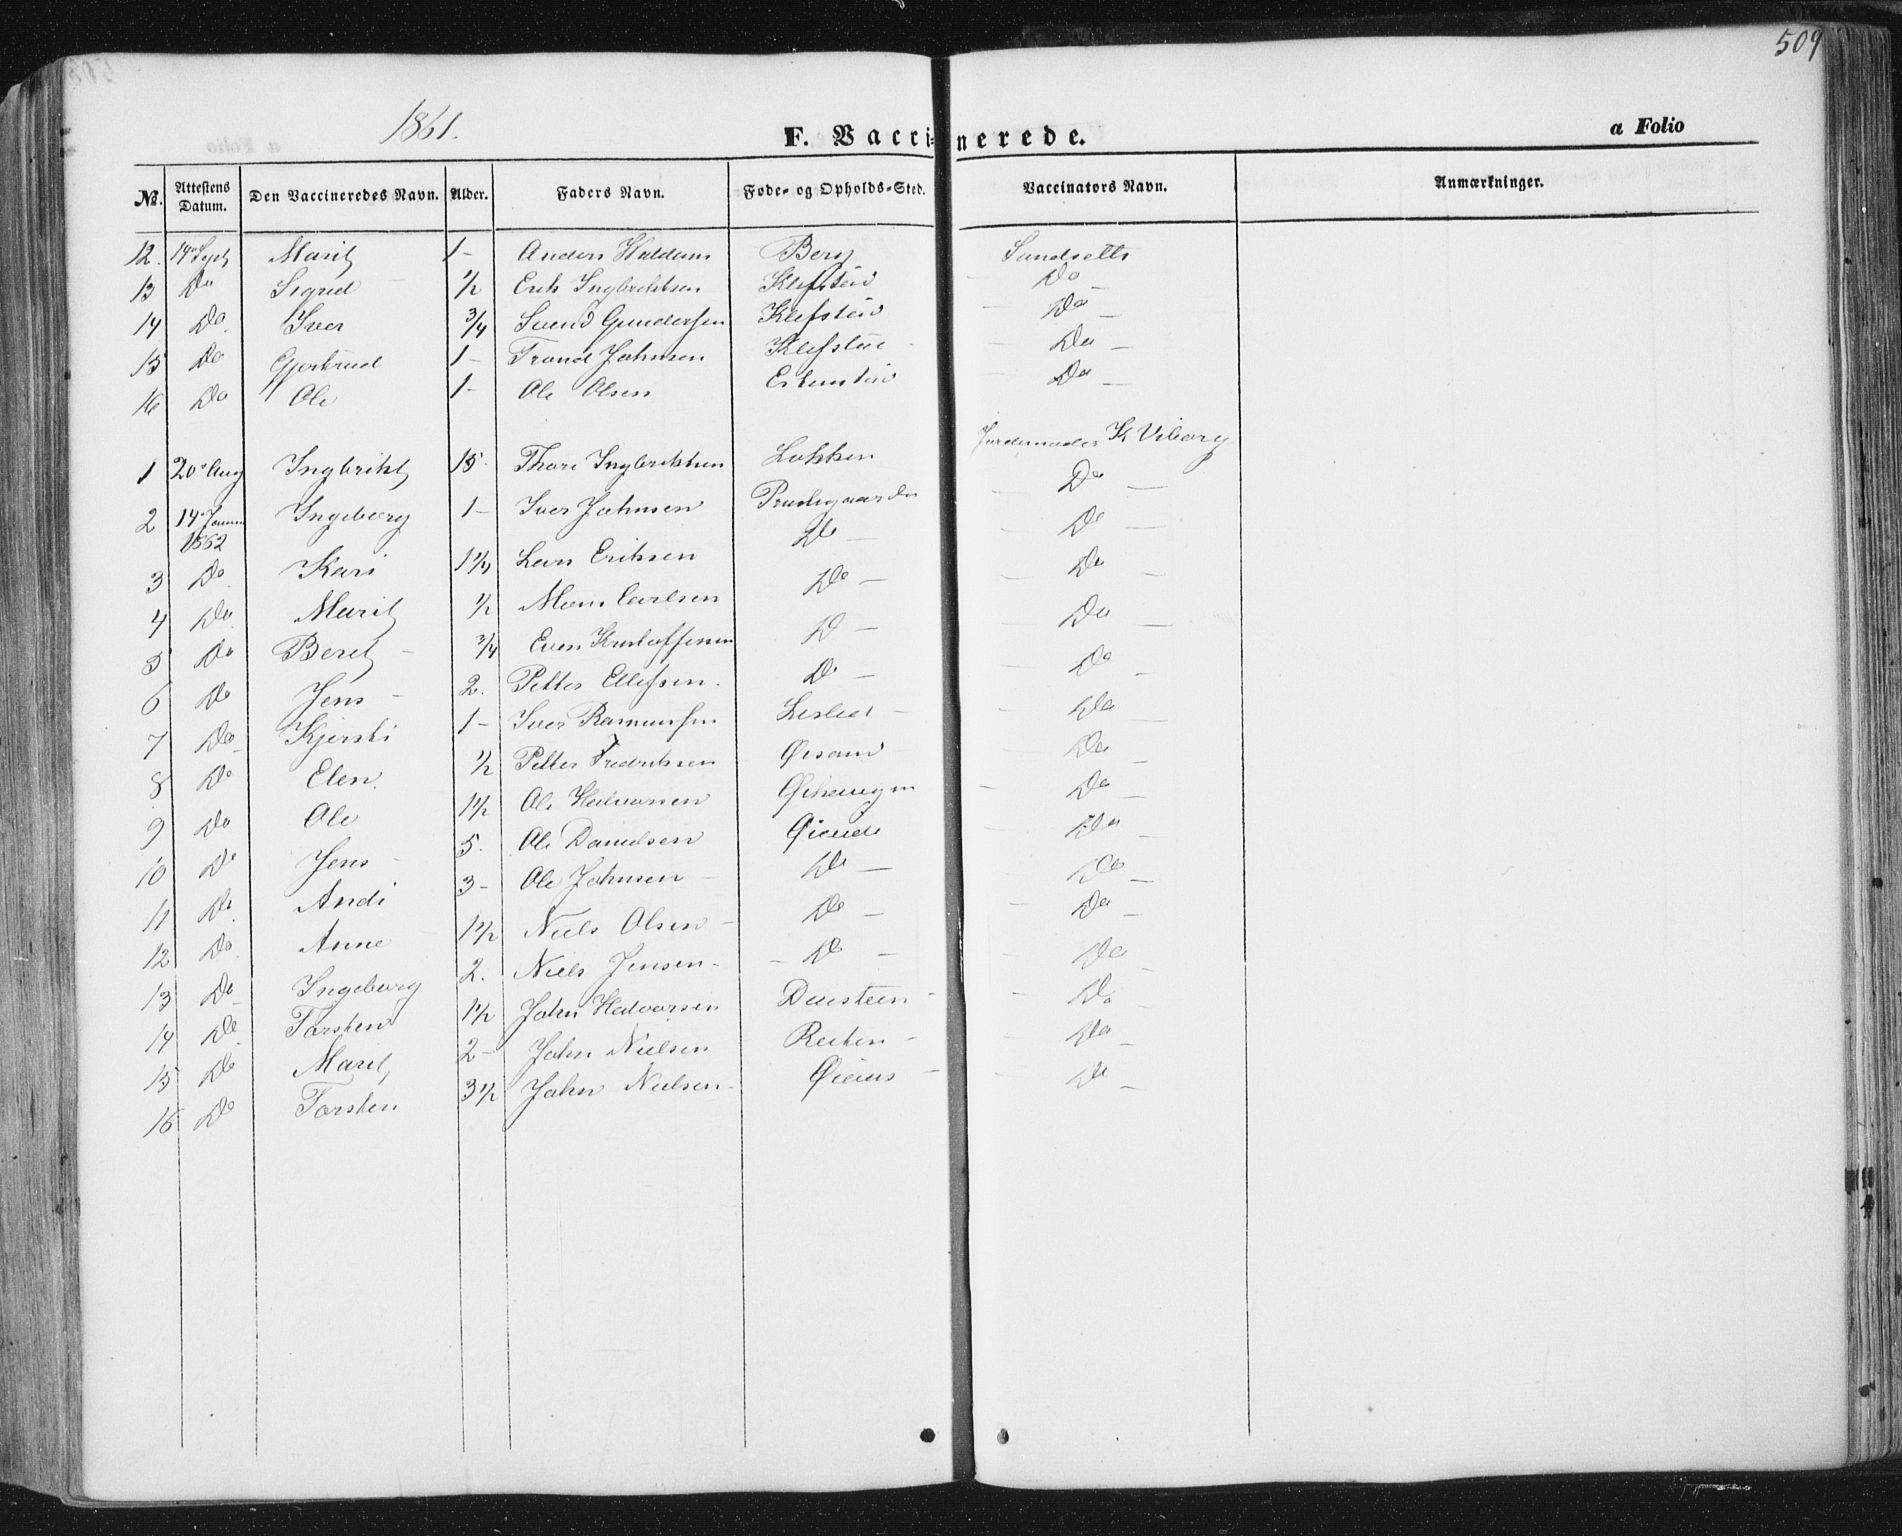 509
1861.
F. Vaccinerede.
a Folio
No. Attestens Datum. Den Vaccineredes Navn. Alder. Faders Navn. Føde- og Opholds-Sted. Vaccinators Navn. Anmærkninger.
12. 14de Sept Marit 1 - Anders Berg
13 Do Sigrid - 1/2 Erik Ingbrihtsen Klefstad - Do
14 Do. Iver 3/4 Svend Gundersen Klefstad - Do -
15 Do Gjertrud 1 - Trond Johnsen Klefstad - Do -
16 Do Ole 1 - Ole Olsen - Do -
1 20de Aug Ingbriht 15. Thore Ingbrihtsen Løkken Jordemoder K Viborg
2 14de Januar 1862 Ingeborg 1 - Iver Johnsen Prestegaarden - Do -
3 Do Kari 1 1/4 Lars Eriksen Do - - Do -
4 Do. Marit 1/2 Mons Carlsen Do - - Do -
5 Do Beret - 3/4 Even Kristoffersen D - - Do -
6 Do Jens - 2. Petter Ellefsen. D - - Do -
7 Do Kjersti 1 - Iver Rasmussen - - Do -
8 Do Elen. 1/2 Petter Fredriksen - Do -
9 Do Ole 1 1/2 Ole Halvorsen - Do -
10 Do Jens - 5. Ole Danielsen - Do -
11 Do Andr 3 - Ole Johnsen - Do - - Do -
12 Do Anne - 1 1/2 Niels Olsen - Do - - Do -
13 Do Ingeborg 2. Niels Jensen - - D - - Do
14 Do Torsten 1 1/2 John Halvorsen - - Do
15 Do Marit 2 - John Nielsen - - Do -
16 Do Torsten 3 1/2 John Nielsen - - - Do -